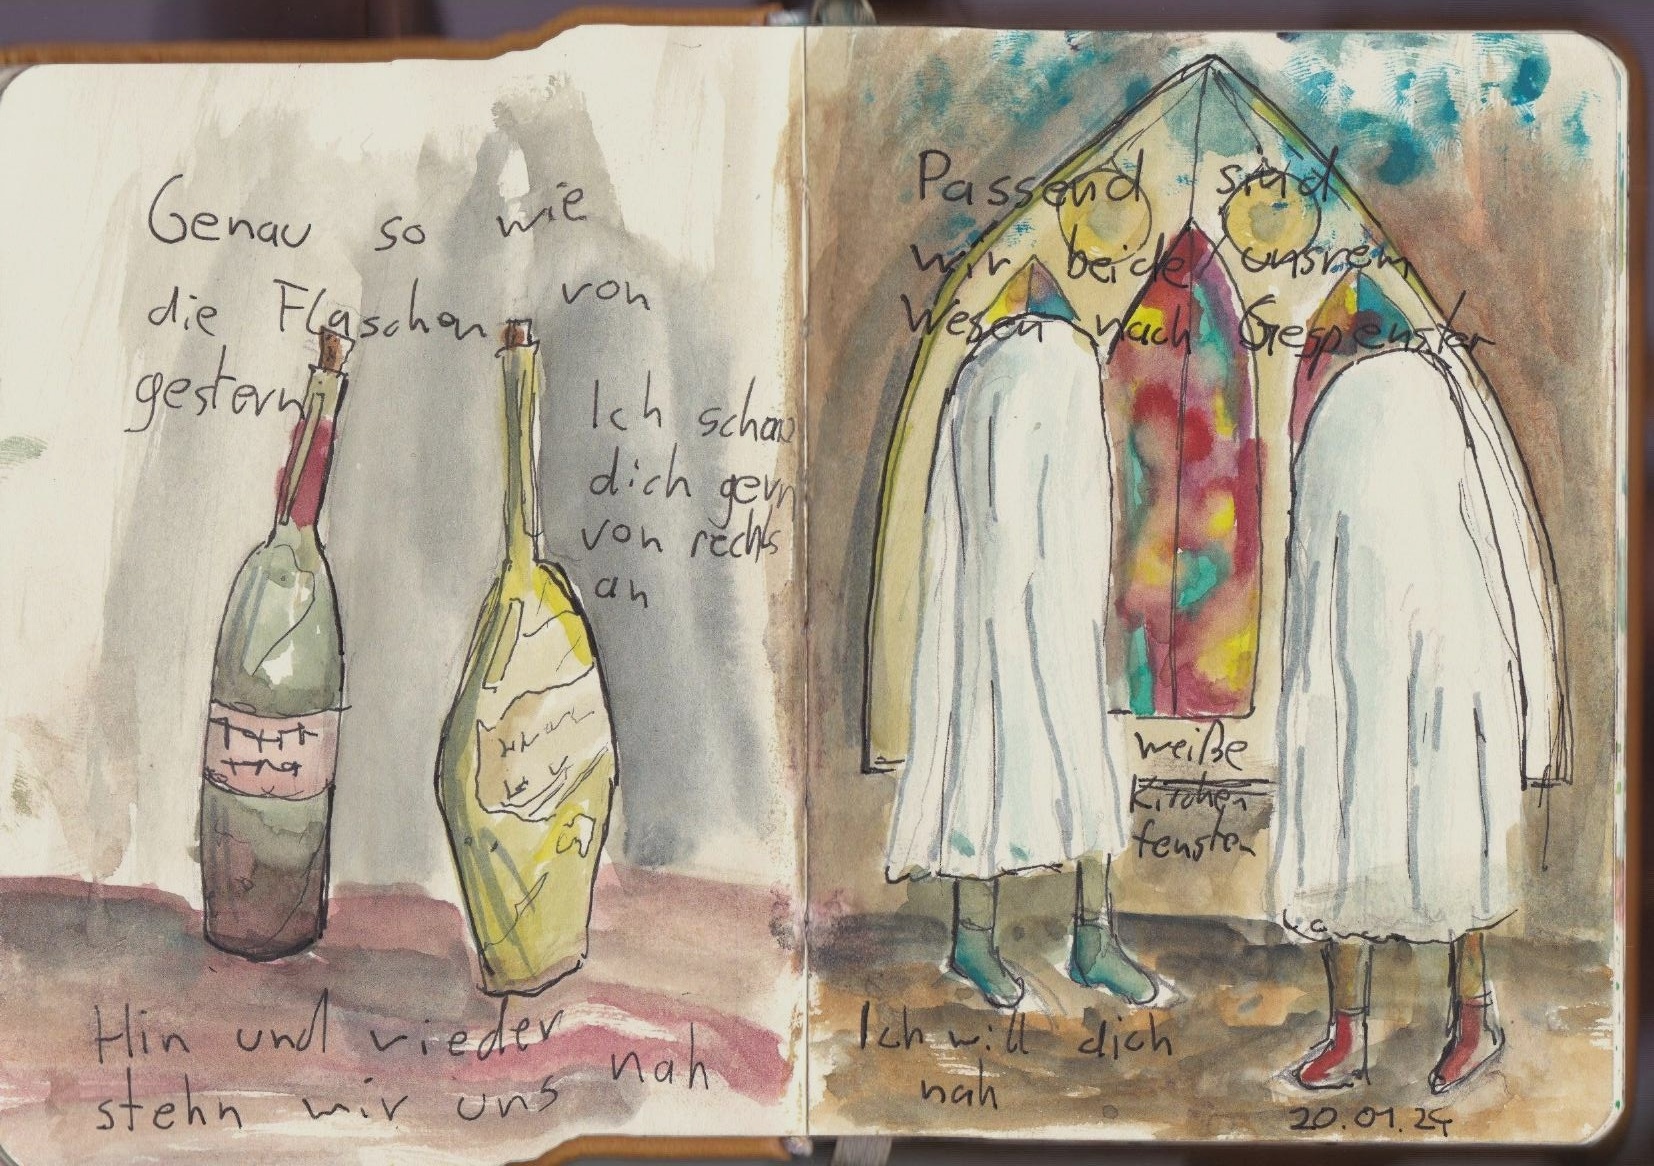 Genau so wie
die Flaschen von
gestern
Ich schau
dich gern
von rechts
an
Hin und wieder
stehn wir uns nah
Passend sind
wir beide unsrem
Wesen nach Gespenster
weiße
Kirchen
fenster
Ich will dich
nah
20.01.24